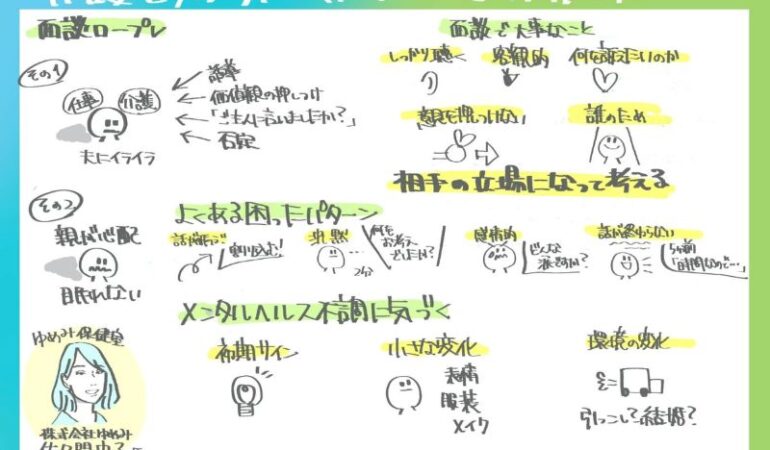 面談ロープレ
その1
仕事 介護
夫にイライラ
講釈
価値観の押しつけ
「ご主人に言いましたか?」
否定
面談で大事なこと
しっかり聴く 客観的 何を訴えたいのか
意見を押しつけない 誰のため
相手の立場になって考える
その2
親が心配
眠れない
よくある困ったパターン
割り込む!
沈黙
2分
何を
お考え
でしたか?
感情的
どんな
話が終わらない
5分前
「時間なので…」
メンタルヘルス不調に気づく
初期サイン
小さな変化
表情
服装
メイク
環境の変化
引っこし?結婚?
ゆめみ保健室
株式会社ゆめみ